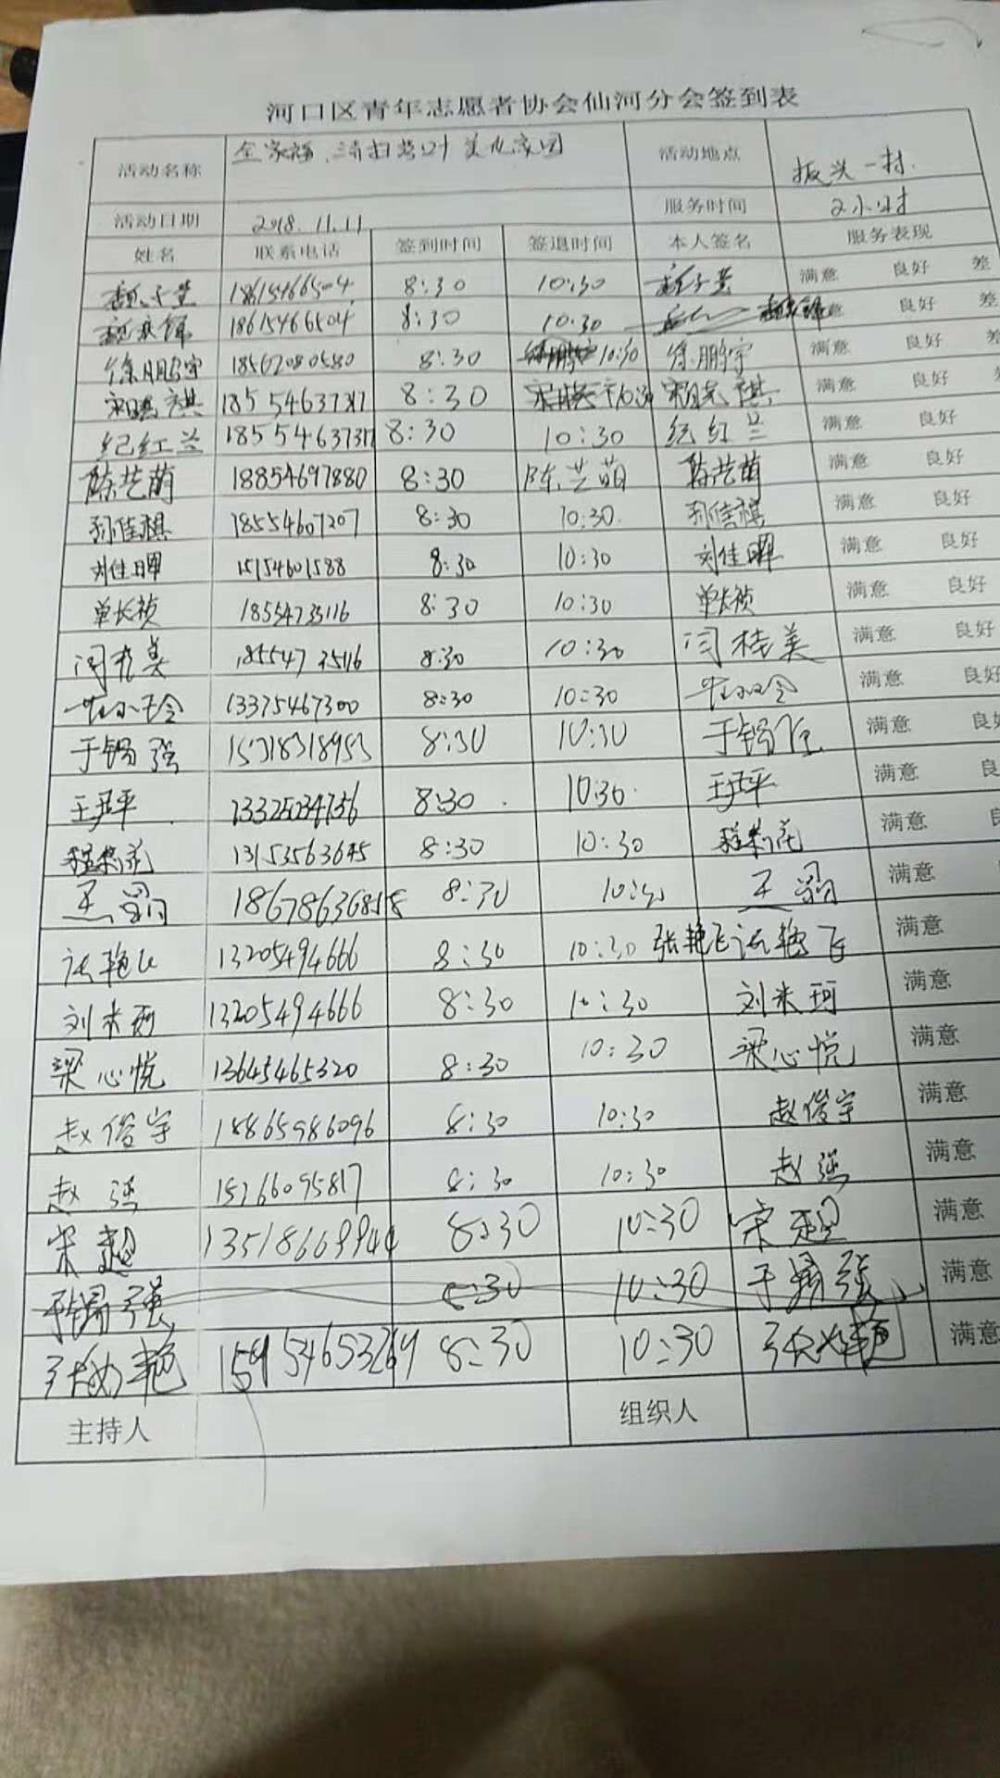 河口区青年志愿者协会仙河分会签到表
活动名称 全家福、清扫落叶 美化家园 活动地点 振兴一村.
活动日期 2018.11.11 服务时间 2小时
姓名 联系电话 签到时间 签退时间 本人签名 服务表现
18615466504 8:30 10:30 满意 良好 差
18615466504 8:30 10:30 满意 良好 差
徐鹏宇 18562080580 8:30 10:30 徐鹏宇 满意 良好 差
8:30 满意 良好 差
纪红兰 18554637317 8:30 10:30 纪红兰 满意 良好
陈芝萌 18854697880 8:30 陈芝萌 陈芝萌 满意 良好
孙佳祺 18554607207 8:30 10:30. 孙佳祺 满意 良好
刘佳晖 15154601588 8:30 10:30 刘佳晖 满意 良好
单长祯 18554735116 8:30 10:30 单长祯 满意 良好
闫桂美 8:30 10:30 闫桂美 满意 良好
13375467300 8:30 10:30 满意 良好
于锡强 15318318953 8:30 10:30 于锡强 满意 良好
王尹平 13325034756 8:30 10:30 王尹平 满意 良
13153563645 8:30 10:30 满意 良
8:30 10:30 满意
张艳飞 13205494666 8:30 10:30 张艳飞 张艳飞 满意
刘米珂 13205494666 8:30 10:30 刘米珂 满意
梁心悦 13645465320 8:30 10:30 梁心悦 满意
赵俊宇 18865986096 8:30 10:30 赵俊宇 满意
赵强 15266095817 8:30 10:30 赵强 满意
宋超 13518669944 8:30 10:30 宋超 满意
于锡强 8:30 10:30 于锡强 满意
15954653269 8:30 10:30 满意
主持人 组织人